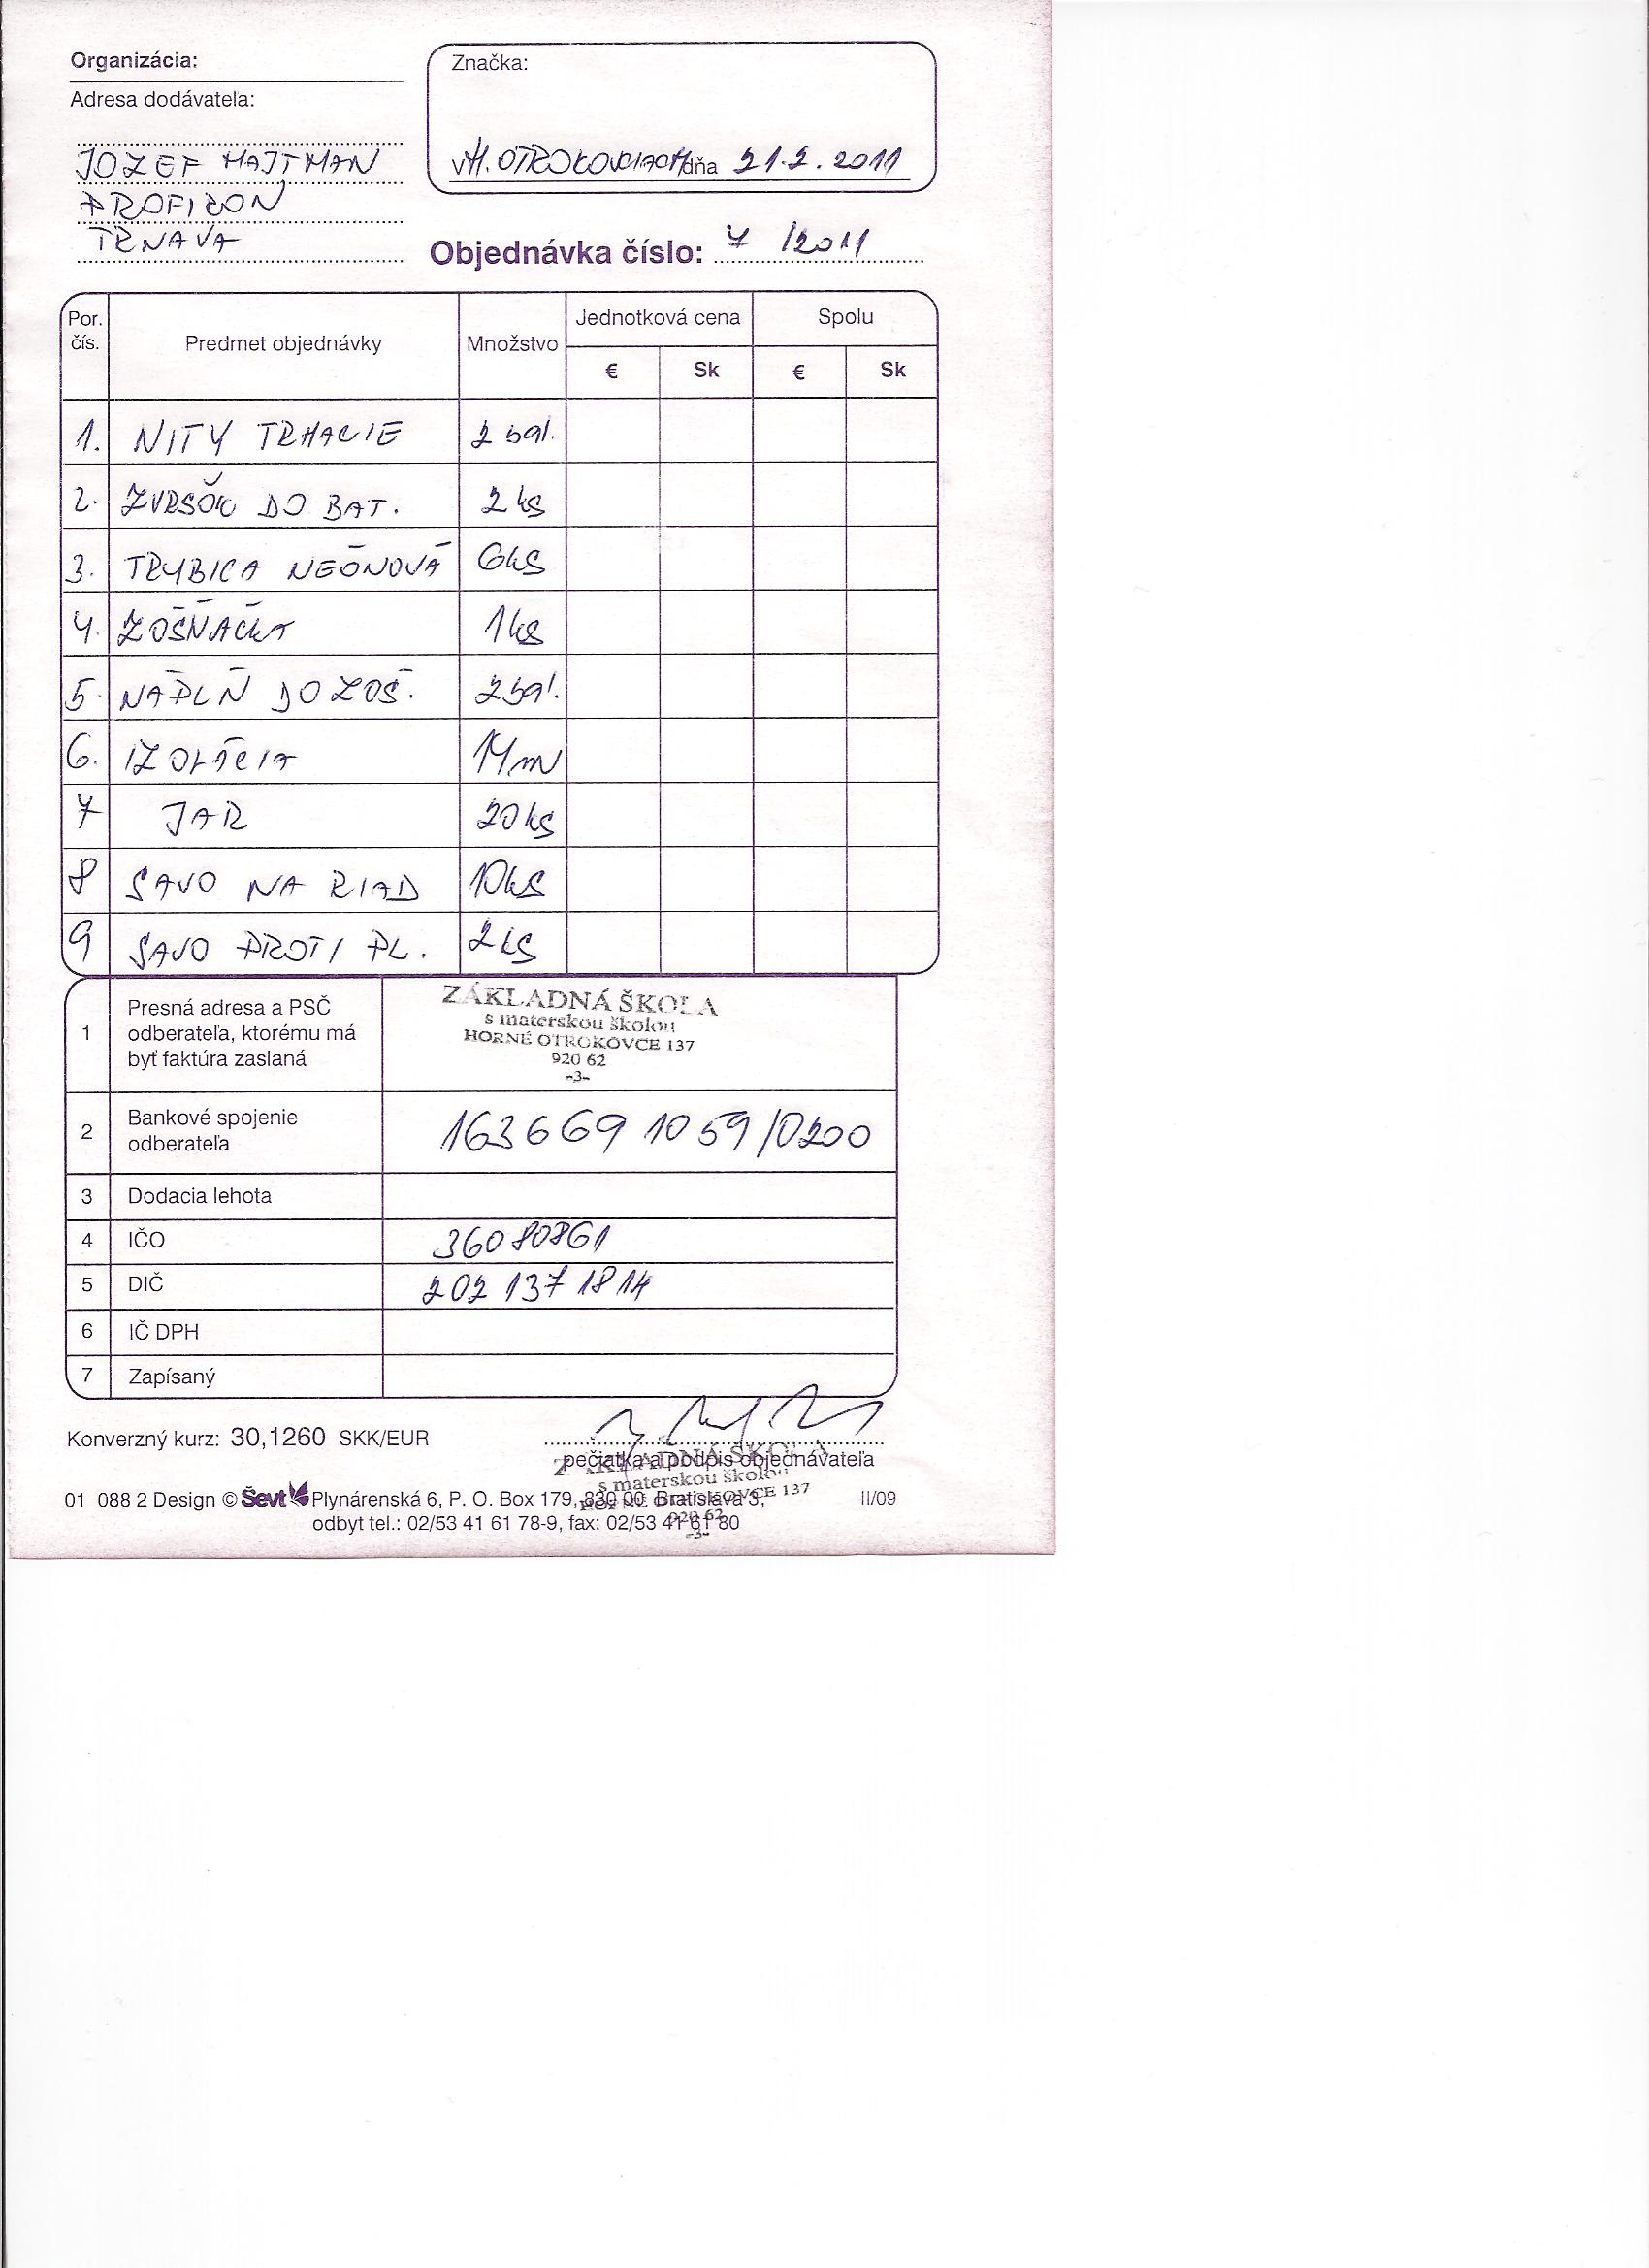 Organizácia:
Značka:
Adresa dodávateľa:
JOZEF HAJTMAN
v H. OTROKOVCIACH dňa 21.2.2011
PROFIKON
TRNAVA
Objednávka číslo: 7 /2011
Por. čís. Predmet objednávky Množstvo Jednotková cena Spolu
€ Sk € Sk
1. NITY TRHACIE 2 bal.
2. ZVRŠOK DO BAT. 2 ks
3. TRUBICA NEÓNOVÁ 6ks
4. ZOŠÍVAČKA 1ks
5. NÁPLŇ DO ZOŠ. 2 bal.
6. IZOLÁCIA 14m
7 JAR 20ks
8 SAVO NA RIAD 10ks
9 SAVO PROTI PL. 2ks
1 Presná adresa a PSČ
odberateľa, ktorému má
byť faktúra zaslaná
ZÁKLADNÁ ŠKOLA
s materskou školou
HORNÉ OTROKOVCE 137
920 62
-3-
2 Bankové spojenie
odberateľa
1636691059/0200
3 Dodacia lehota
4 IČO 36080861
5 DIČ 2021371814
6 IČ DPH
7 Zapísaný
Konverzný kurz: 30,1260 SKK/EUR
pečiatka a podpis objednávateľa
ZÁKLADNÁ ŠKOLA
s materskou školou
HORNÉ OTROKOVCE 137
920 62
-3-
01 088 2 Design © Ševt Plynárenská 6, P. O. Box 179, 830 00 Bratislava 3, II/09
odbyt tel.: 02/53 41 61 78-9, fax: 02/53 41 61 80